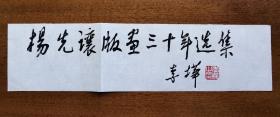 楊先讓版画三十年选集
李樺